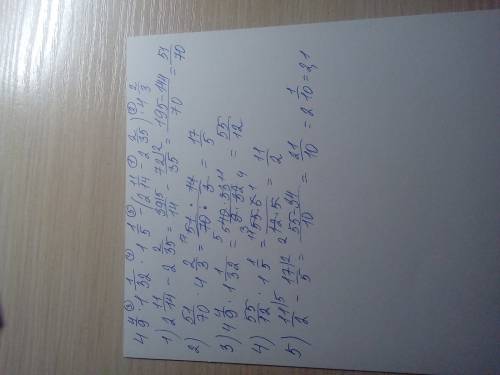 4 4/9 ③· 1 1/32 ④· 1 1/5 ⑤- (2 11/14 ①- 2 2/35) ②· 4 2/3
1) 2 11/14 - 2 2/35 = 39\5/14 - 72\2/35 = 195-144/70 = 51/70
2) 51/70 · 4 2/3 = 51/70 · 14/3 = 17/5
3) 4 4/9 · 1 1/32 = 40·33/9·32 = 55/12
4) 55/12 · 1 1/5 = 55·6/12·5 = 11/2
5) 11\5/2 - 17\2/5 = 55-34/10 = 21/10 = 2 1/10 = 2,1